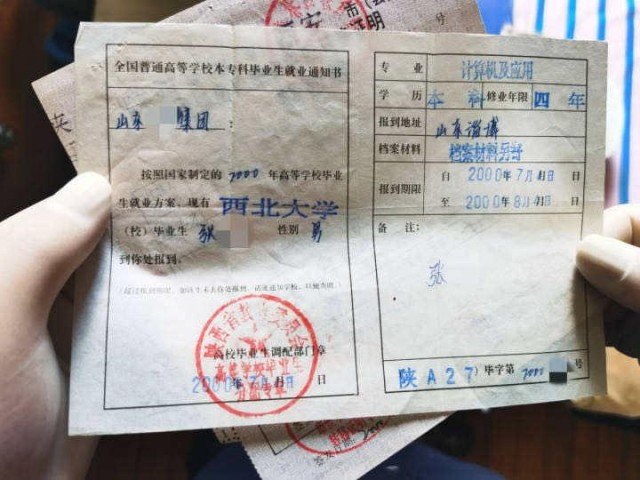 全国普通高等学校本专科毕业生就业通知书
山东 集团：
按照国家制定的 2000 年高等学校毕业
生就业方案，现有 西北大学
（校）毕业生 张 性别 男
到你处报到。
高校毕业生调配部门章
2000年7月1日
专业 计算机及应用
学历 本科 修业年限 四年
报到地址 山东淄博
档案材料 档案材料另寄
报到期限
自 2000年7月1日
至 2000年8月
备注：
张
陕A27）毕字第 2000 号